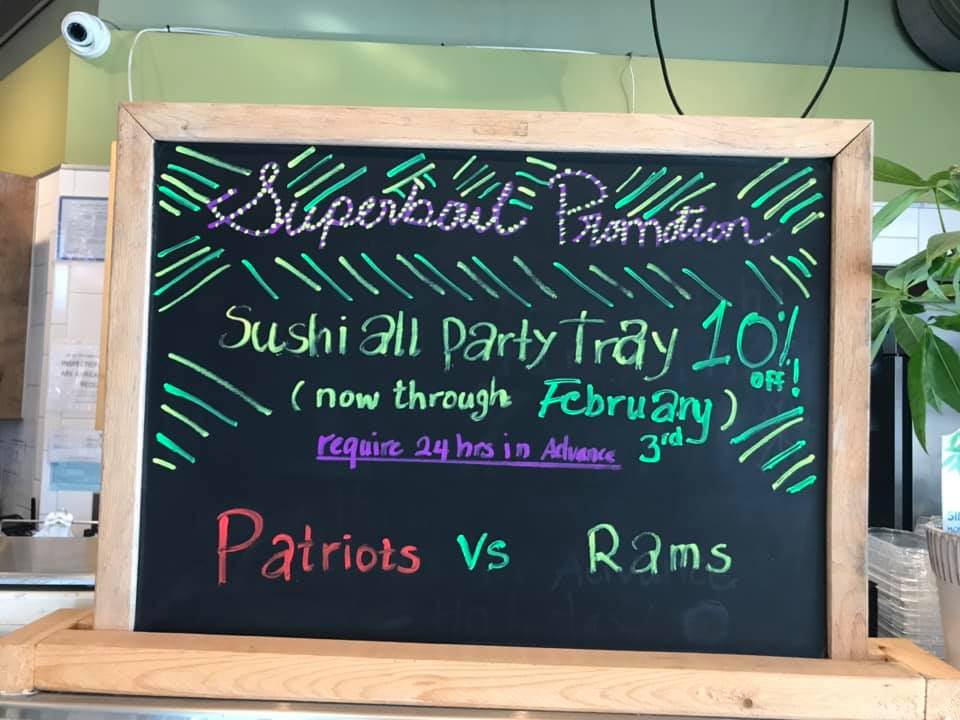 Superboul Promotion
Sushi all party Tray 10% OFF!
(now through February 3rd)
require 24 hrs in Advance
Patriots Vs Rams